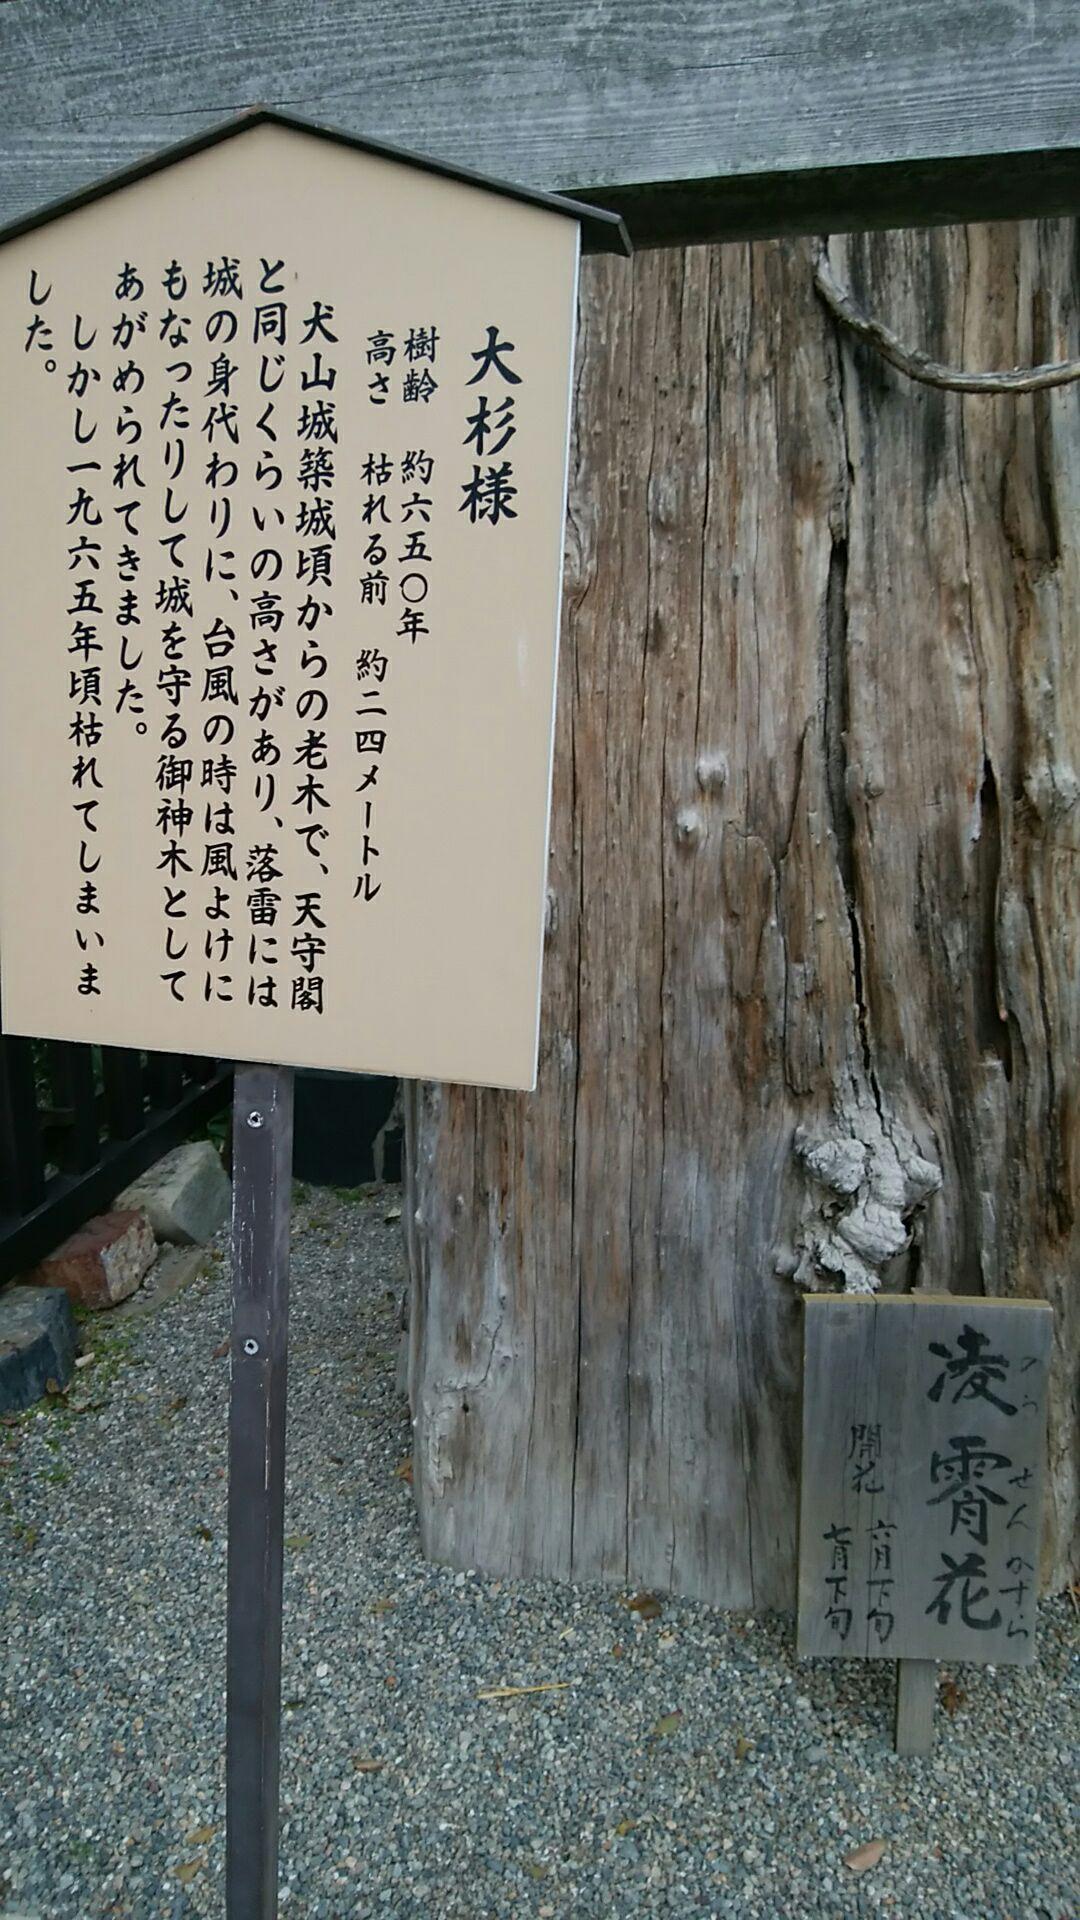 大杉様
樹齢 約六五〇年
高さ 枯れる前 約二四メートル
犬山城築城頃からの老木で、天守閣
と同じくらいの高さがあり、落雷には
城の身代わりに、台風の時は風よけに
もなったりして城を守る御神木として
あがめられてきました。
しかし一九六五年頃枯れてしまいま
した。
のうせんかずら
凌霄花
開花 六月下旬
七月下旬